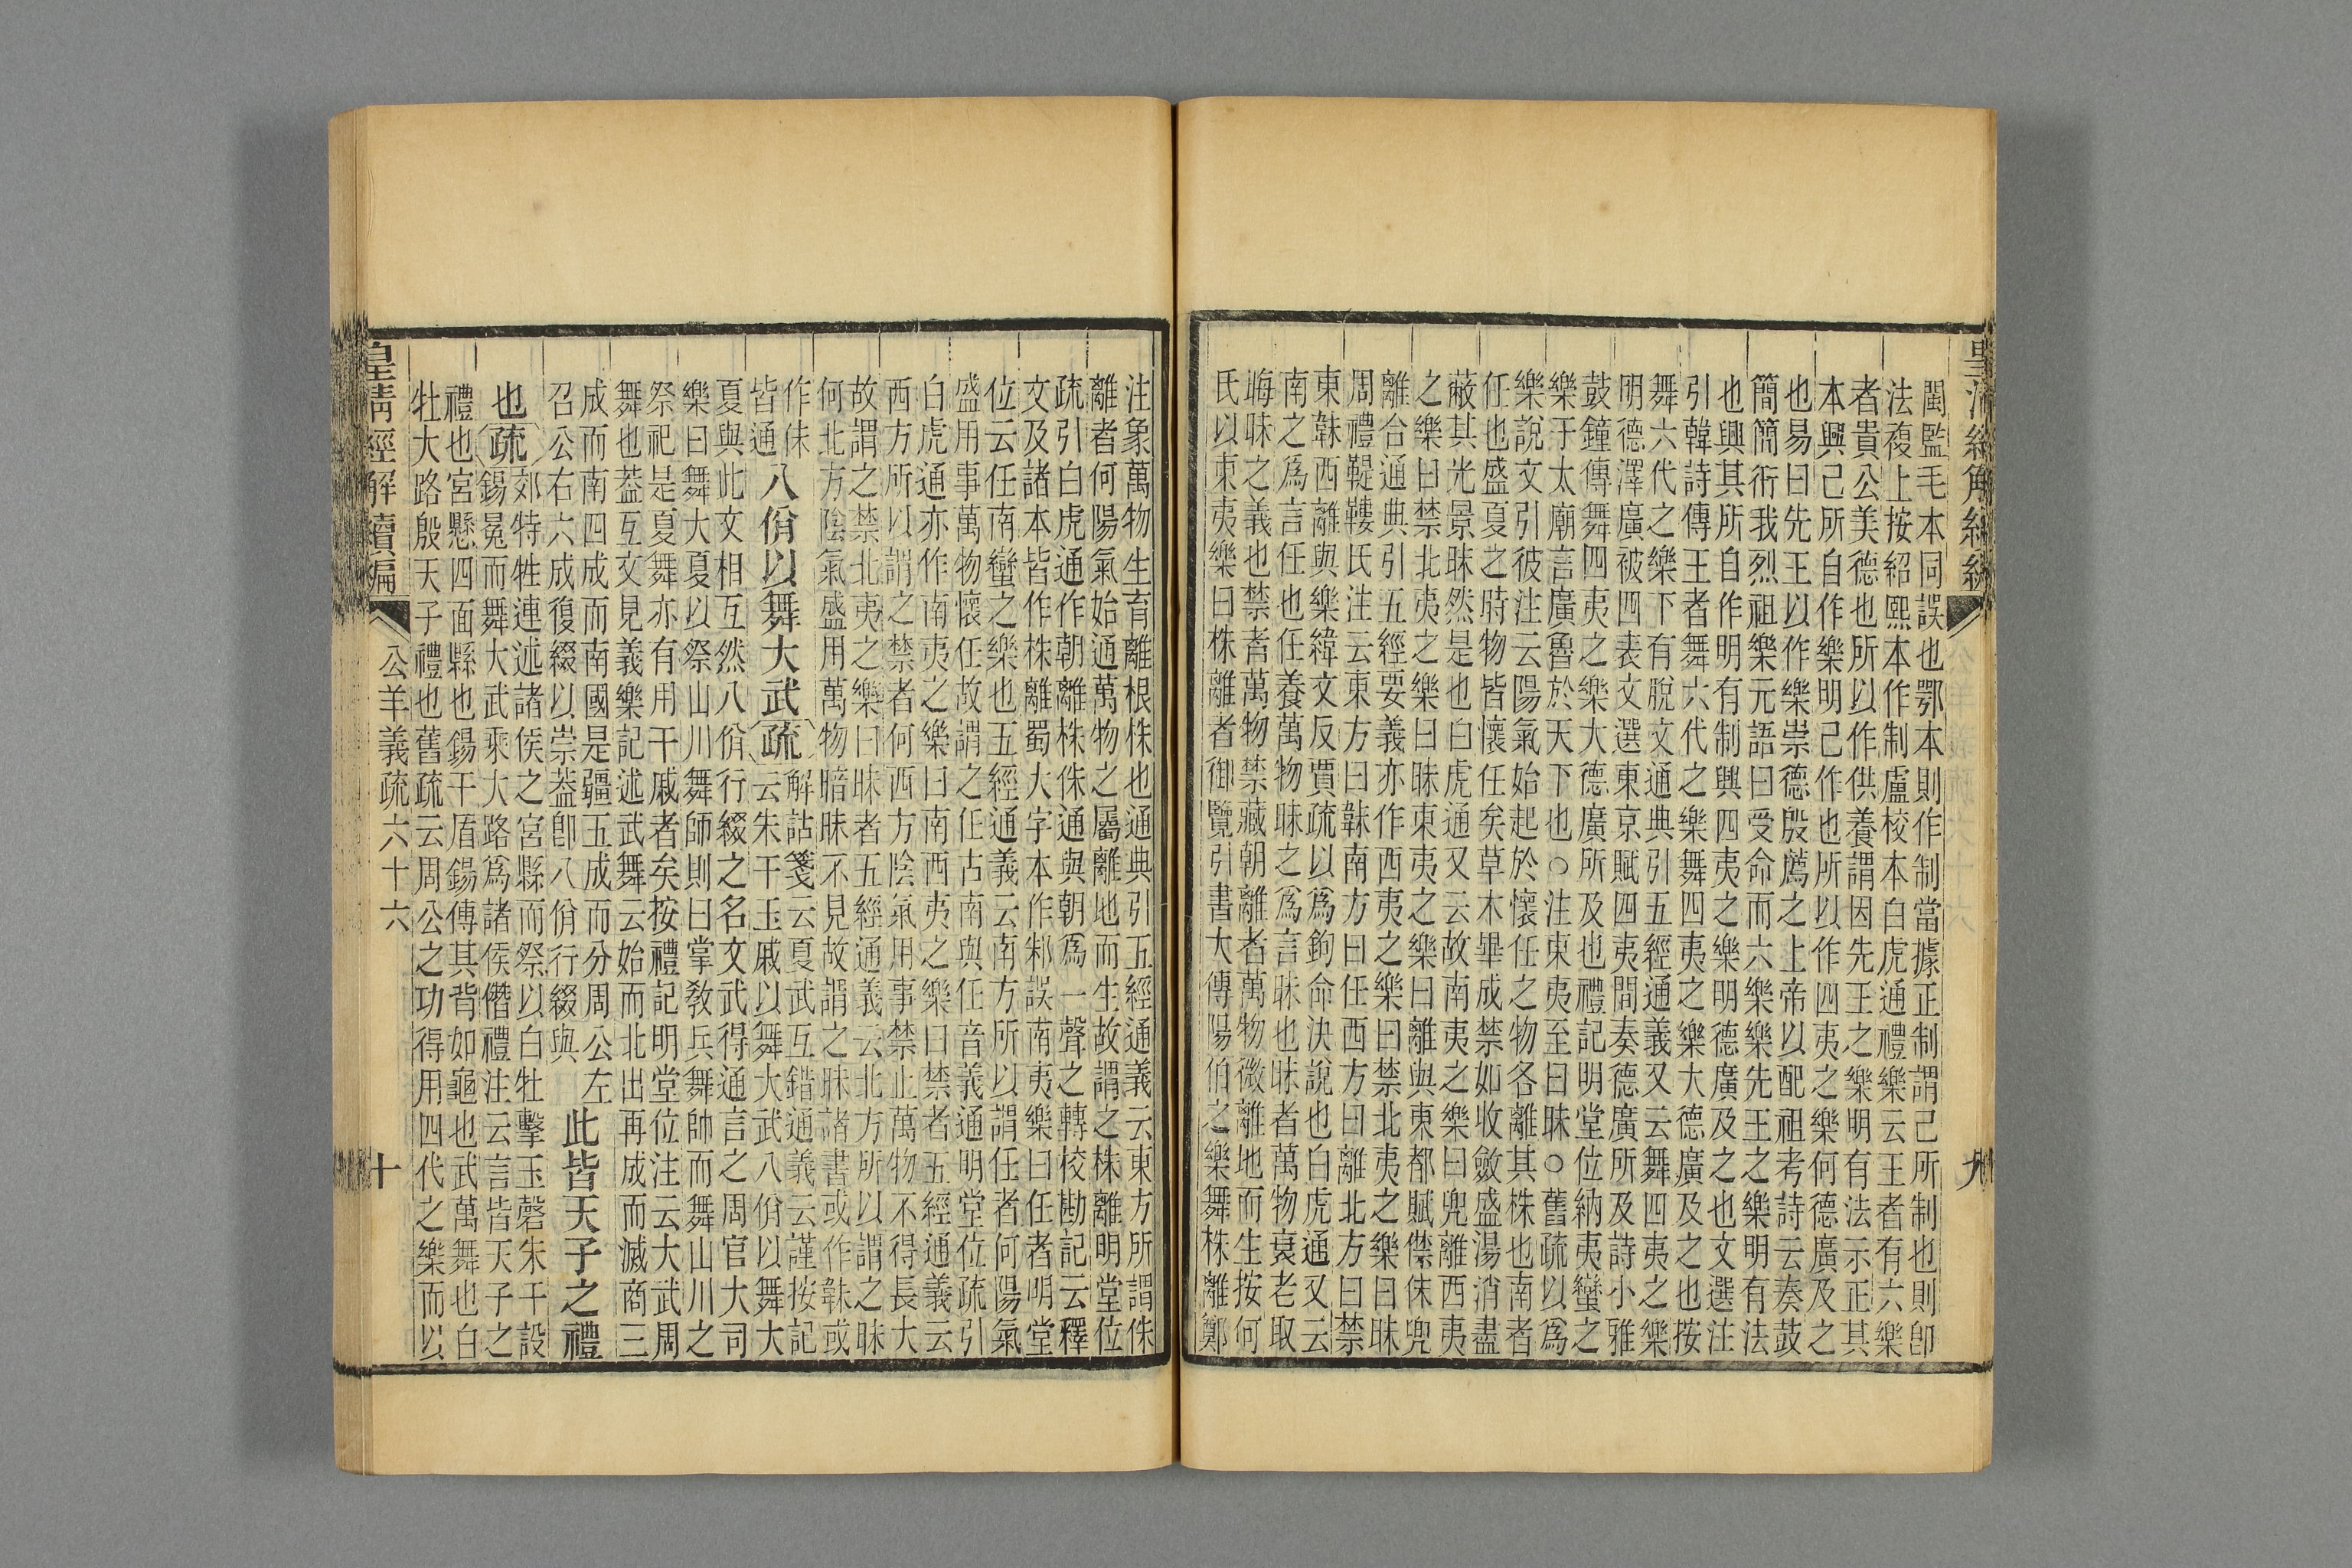 皇清經解續編
九
閩監毛本同誤也鄂本則作制當據正制謂己所制也則卽
法複上按紹熙本作制盧校本白虎通禮樂云王者有六樂
者貴公美德也所以作供養謂因先王之樂明有法示正其
本興己所自作樂明己作也所以作四夷之樂何德廣及之
也易曰先王以作樂崇德殷薦之上帝以配祖考詩云奏鼓
簡簡衎我烈祖樂元語曰受命而六樂樂先王之樂明有法
也興其所自作明有制興四夷之樂明德廣及之也文選注
引韓詩傳王者舞六代之樂舞四夷之樂大德廣及之也按
舞六代之樂下有脫文通典引五經通義又云舞四夷之樂
明德澤廣被四表文選東京賦四夷間奏德廣所及詩小雅
鼓鐘傳舞四夷之樂大德廣所及也禮記明堂位納夷蠻之
樂于太廟言廣魯於天下也○注東夷至曰昧○舊疏以爲
樂說文引彼注云陽氣始起於懷任之物各離其株也南者
任也盛夏之時物皆懷任矣草木畢成禁如收斂盛湯消盡
蔽其光景昧然是也白虎通又云故南夷之樂曰兜離西夷
之樂曰禁北夷之樂曰昧東夷之樂曰離與東都賦僸佅兜
離合通典引五經要義亦作西夷之樂曰禁北夷之樂曰昧
周禮鞮鞻氏注云東方曰韎南方曰任西方曰離北方曰禁
東韎西離與樂緯文反賈疏以爲鉤命決說也白虎通又云
南之爲言任也任養萬物昧之爲言昧也昧者萬物衰老取
晦昧之義也禁者萬物禁藏朝離者萬物微離地而生按何
氏以東夷樂曰株離者御覽引書大傳陽伯之樂舞株離鄭
注象萬物生育離根株也通典引五經通義云東方所謂侏
離者何陽氣始通萬物之屬離地而生故謂之株離明堂位
疏引白虎通作朝離株侏通與朝爲一聲之轉校勘記云釋
文及諸本皆作株離蜀大字本作邾誤南夷樂曰任者明堂
位云任南蠻之樂也五經通義云南方所以謂任者何陽氣
盛用事萬物懷任故謂之任古南與任音義通明堂位疏引
白虎通亦作南夷之樂曰南西夷之樂曰禁者五經通義云
西方所以謂之禁者何西方陰氣用事禁止萬物不得長大
故謂之禁北夷之樂曰昧者五經通義云北方所以謂之昧
何北方陰氣盛用萬物暗昧不見故謂之昧諸書或作韎或
作佅
皆通
八佾以舞大武
疏
解詁箋云夏武互錯通義云謹按記
云朱干玉戚以舞大武八佾以舞大
夏與此文相互然八佾行綴之名文武得通言之周官大司
樂曰舞大夏以祭山川舞師則曰掌敎兵舞帥而舞山川之
祭祀是夏舞亦有用干戚者矣按禮記明堂位注云大武周
舞也蓋互文見義樂記述武舞云始而北出再成而滅商三
成而南四成而南國是疆五成而分周公左
召公右六成復綴以崇蓋卽八佾行綴與
此皆天子之禮
也
疏
郊特牲連述諸侯之宮縣而祭以白牡擊玉磬朱干設
錫冕而舞大武乘大路爲諸侯僭禮注云言皆天子之
禮也宮懸四面縣也錫干盾錫傳其背如龜也武萬舞也白
牡大路殷天子禮也舊疏云周公之功得用四代之樂而以
皇清經解續編
公羊義疏六十六
十